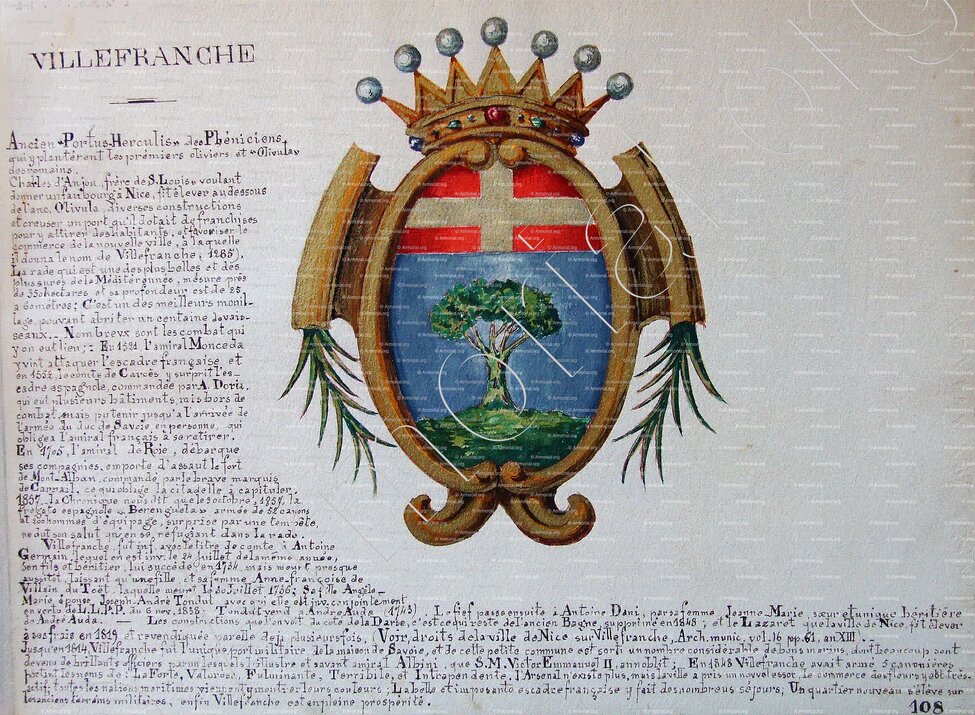 VILLEFRANCHE
Ancien "Portus-Herculis" des Phéniciens,
qui y plantèrent les prémiers oliviers et "Olivula"
des romains.
Charles d'Anjou, frère de S. Louis voulant
donner un faubourg à Nice, fit élever au dessous
de l'anc. Olivula, diverses constructions
et creuser un port qu'il dotait de franchises
pour y attirer des habitants, et favoriser le
commerce de la nouvelle ville, à laquelle
il donna le nom de Villefranche, (1285).
La rade qui est une des plus belles et des
plus sures de la Méditérannée, mésure près
de 350 hectares et sa profondeur est de 25,
a 60 mètres; C'est un des meilleurs mouil-
lage, pouvant abriter un centaine de vais-
seaux.. Nombreux sont les combat qui
y on eut lieu;: En 1524 l'amiral Monceda
y vint attaquer l'escadre française, et
en 1552, le comte de Carcès y surprit l'es-
cadre espagnole, commandée par A. Doria,
qui eut plusieurs bâtiments, mis hors de
combat, mais pu tenir jusqu'à l'arrivée de
l'armée du duc de Savoie en personne, qui
obligea l'amiral français à se retirer.
En 1705, l'amiral de Roie, débarque
ses compagnies, emporte d'assaut le fort
de Mont-Alban, commandé par le brave marquis
de Carrail, ce qui oblige la citadelle à capituler.
1857, la Chronique nous dit que le octobre, 1857, la
frégate espagnole "Berenguela" armée de 52 canons
et 500 hommes d'équipage, surprise par une tempête,
ne dut son salut qu'en se réfugiant dans la rade.
Villefranche, fut inf. avec le titre de comte à Antoine
Germain, lequel en est inv. le 24 juillet de la même année,
son fils et héritier, lui succède en 1734, mais meurt presque
aussitôt, laissant qu'une fille, et sa femme Anne-françoise de
Villain du Toët, laquelle meurt le 30 juillet 1736; Sa fille Angèle-
Marie épouse Joseph-André Tondut, avec qui elle est inv. conjointement
en vertu de L.L.P.P. du 6 nov. 1838 Tondut vend à André Auda (1743). Le fief passe ensuite à Antoine Dani, par sa femme, Jeanne-Marie, sœur et unique héritière
de André Auda. — Les constructions que l'on voit du côté de la Darse, c'est ce qui reste de l'ancien Bagne, supprimé en 1848; et le Lazaret que la ville de Nice, fit élever
à ses frais en 1819 et revendiquée par elle déjà plusieurs fois. (Voir, droits de la ville de Nice sur Villefranche, Arch. munic, vol. 16 pp. 61, an XIII). —
Jusqu'en 1814 Villefranche fut l'unique port militaire de la maison de Savoie, et de cette petite commune est sorti un nombre considérable de bons marins, dont beaucoup sont
devenu de brillants officiers parmi lesquels l'illustre et savant amiral Albini, que S.M. Victor Emmanuel II, annoblit; En 1848 Villefranche, avait armé 5 canonnières
portant les noms de: La Forte, Valorosa, Fulminante, Terribile, et Intrapendente, l'Arsenal n'existe plus, mais la ville a pris un nouvel essor, le commerce des fleurs y est très
actif, toutes les nations maritimes viennent y montrer leurs couleurs; La belle et imposante escadre française y fait des nombreux séjours, Un quartier nouveau s'élève sur
les anciens terrains militaires, enfin Villefranche est en pleine prospérité.
108
© Armorial.org